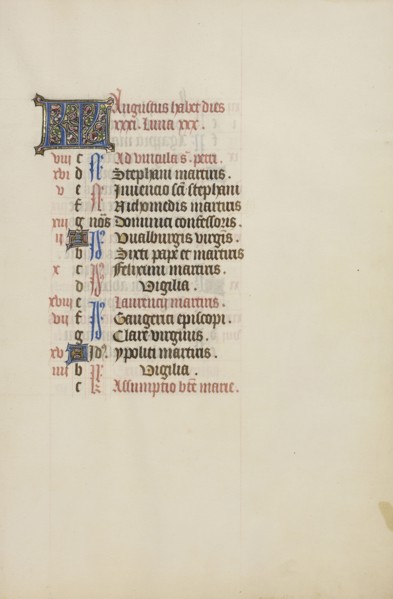 KL Augustus habet dies
xxxi. Luna xxx.
viii c Ad vincula s. petri.
xvi d Stephani martiris.
v e Inuencio sci stephani
f Nichomedis martiris
xiii g nōs Dominici confessoris.
ii A Vualburgis virgis.
b Sixti pape et martiris
x c Felicimi martiris.
d Vigilia.
xviii e Laurencii martiris.
vii f Gaugerici episcopi.
g Clare virginis.
xv A Id9. ypoliti martiris.
iiii b Vigilia.
c kl Assumptio bte marie.